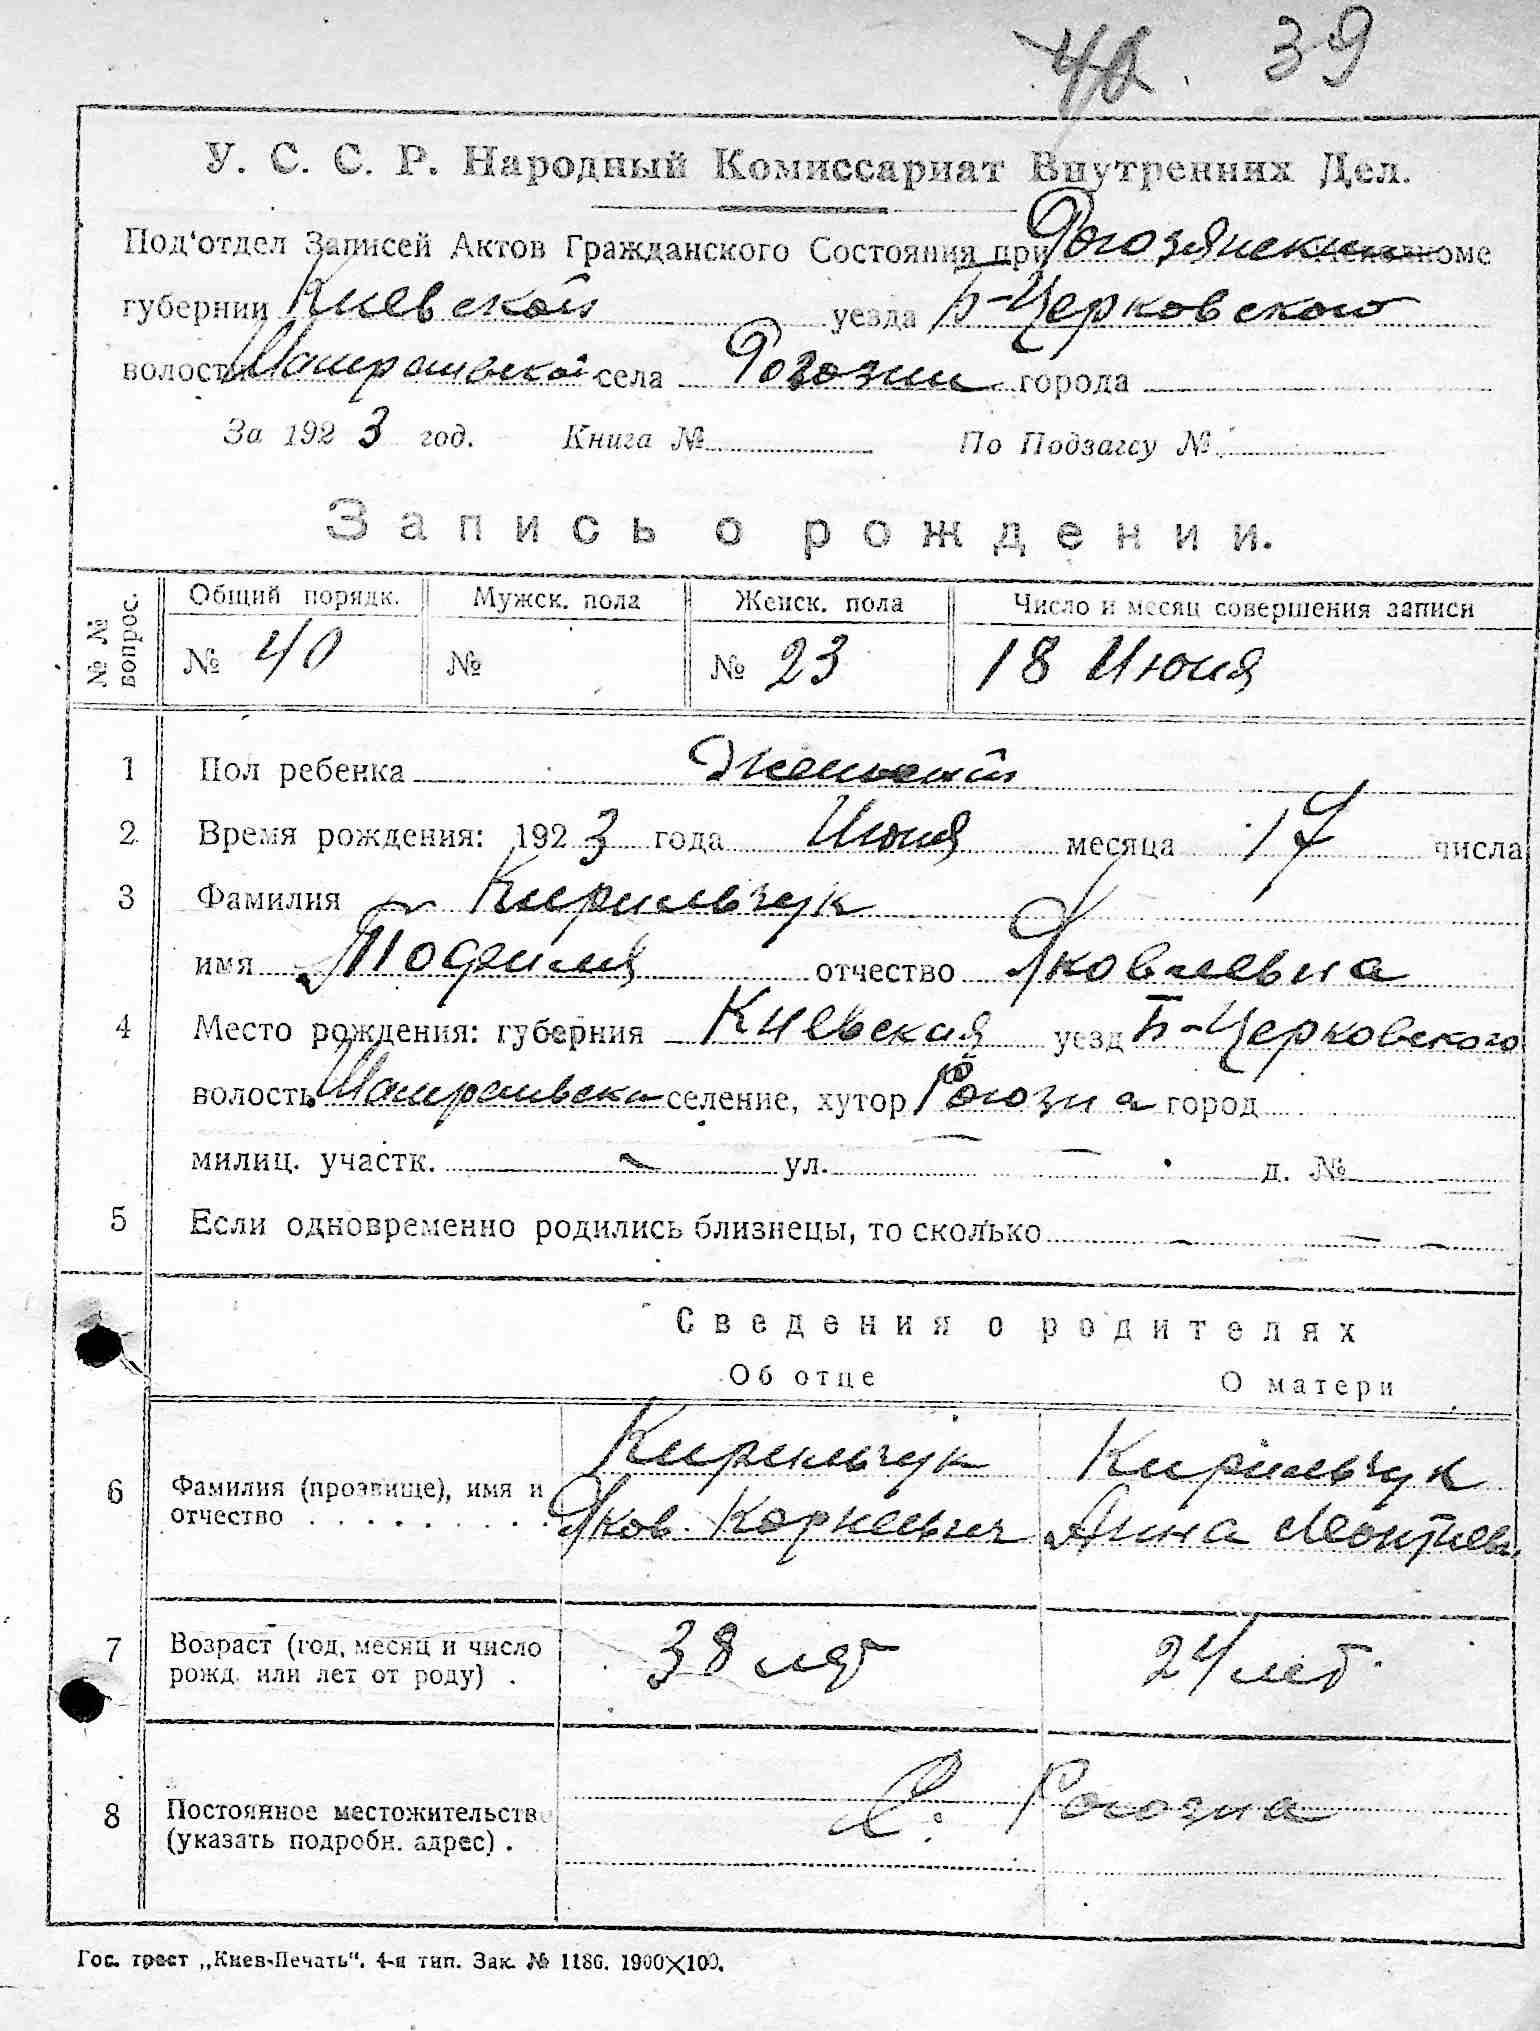 40. 39
У. С. С. Р. Народный Комиссариат Внутренних Дел.
Под'отдел Записей Актов Гражданского Состояния при Рогозянским Исполкоме
губернии Киевской уезда Б-Церковского
волости села Рогозни города
За 1923 год. Книга № По Подзагсу №
Запись о рождении.
№ № вопрос. Общий порядк. Мужск. пола Женск. пола Число и месяц совершения записи
№ 40 № № 23 18 Июня
1 Пол ребенка Женский
2 Время рождения: 1923 года Июня месяца 17 числа
3 Фамилия Кирильчук
имя Тофиля отчество Яковлевна
4 Место рождения: губерния Киевская уезд Б-Церковского
волость селение, хутор Рогозна город
милиц. участк. — ул. — д. № —
5 Если одновременно родились близнецы, то сколько — — —
Сведения о родителях
Об отце О матери
Кирильчук Кирильчук
6 Фамилия (прозвище), имя и отчество Яков Корнеевич Анна Леонтиев.
7 Возраст (год, месяц и число рожд. или лет от роду) . 38 лет 24 лет.
8 Постоянное местожительство (указать подробн. адрес) . С. Рогозна
Гос. трест „Киев-Печать". 4-я тип. Зак. № 1186. 1900×100.